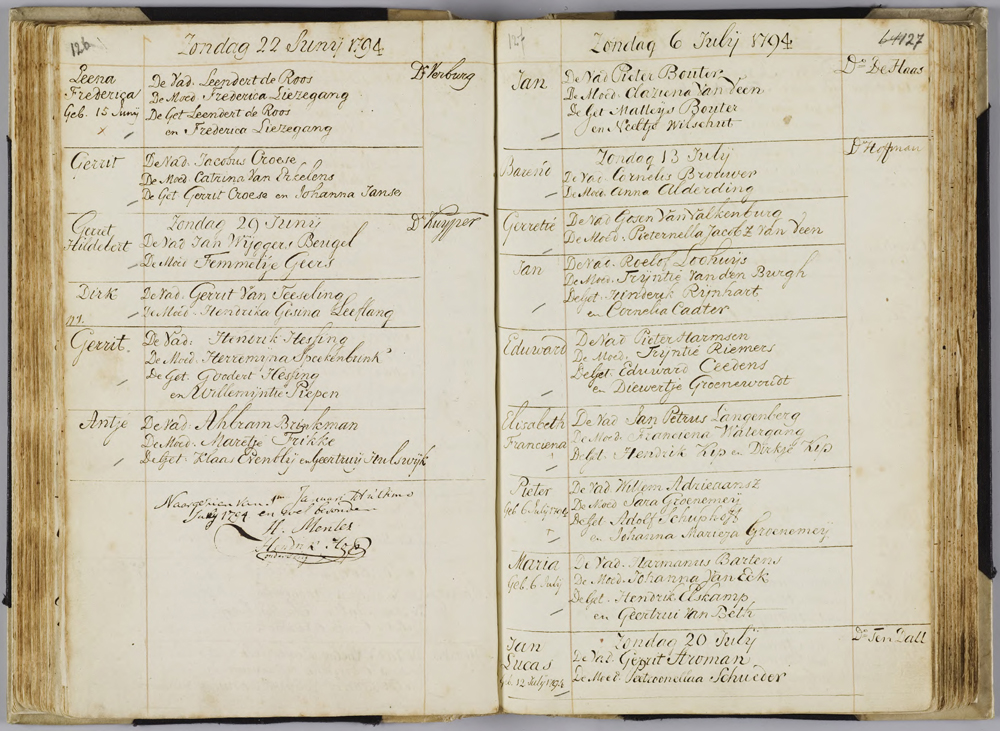 126
Zondag 22 Junij 1794
Leena
Frederica
Geb. 15 Junij
De Vad. Leendert de Roos
De Moed. Frederica Liezegang
De Get Leendert de Roos
en Frederica Liezegang
Ds Verburg
Gerrit
De Vad. Jacobus Croese
De Moed. Catrina Van
De Get Gerrit Croese en Johanna Janse
Zondag 29 Junij
Ds Kuyper
Gerrit
Hiddebert
De Vad Jan Wijggers Beugel
De Moed Femmetje Geers
Dirk
De Vad. Gerrit Van Teeseling
De Moed. Hendrika Gesina Leeflang
Gerrit
De Vad. Hendrik Hessing
De Moed. Herremijna Speekenbrink
De Get. Goodert Hessing
en Willemijntie Piepen
Antje
De Vad. Ahbram Brinkman
De Moed. Maretje Frikke
De Get. Klaas Evenblij en Geertruij Hulswijk
Naargesien van 1m Januari tot ultimo
Junij 1794 en goet bevonden
H. Mentes
Hendrik
127
Zondag 6 July 1794
127
Jan
De Vad Pieter Bouter
De Moed. Claziena Van Veen
De Get Matteijs Bouter
en Neeltje Wilschut
Ds De Haas
Zondag 13 July
Ds Hoffman
Barend
De Vad. Cornelis Brouwer
De Moed Anna Alderding
Gerretie
De Vad Gosen Van Valkenburg
De Moed. Pieternella Jacobz Van Veen
Jan
De Vad. Roelof Loohuijs
De Moed. Trijntie Van den Burgh
De Get. Hinderik Rijnhart
en Cornelia Cadter
Eduward
De Vad Pieter Harmsen
De Moed. Trijntie Riemers
De Get. Eduward Ceedens
en Diewertje Groenewoudt
Elisabeth
Franciena
De Vad Jan Petrus Langenberg
De Moed. Franciena Watergang
De Get. Hendrik Kip en Dirkje Kip
Pieter
Geb 6 July 1794
De Vad. Willem Adrieaansz
De Moed Sara Groenemeij
De Get Adolf Schuphoff
en Johanna Marieja Groenemeij
Maria
Geb. 6 July
De Vad. Harmanus Bartens
De Moed. Johanna Van Eck
De Get. Hendrik Elskamp
en Geertrui Van Beth
Zondag 20 July
Ds Ten Dall
Jan
Lucas
Geb. 12 July 1794
De Vad. Gerrit Stroman
De Moed. Schueder